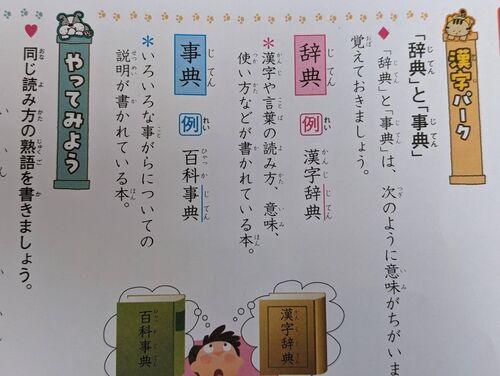 漢字パーク
「辞典」と「事典」
「辞典」と「事典」は、次のように意味がちがいま
覚えておきましょう。
辞典 例 漢字辞典
*漢字や言葉の読み方、意味、
使い方などが書かれている本。
事典 例 百科事典
*いろいろな事がらについての
説明が書かれている本。
漢字辞典
百科事典
やってみよう
同じ読み方の熟語を書きましょう。